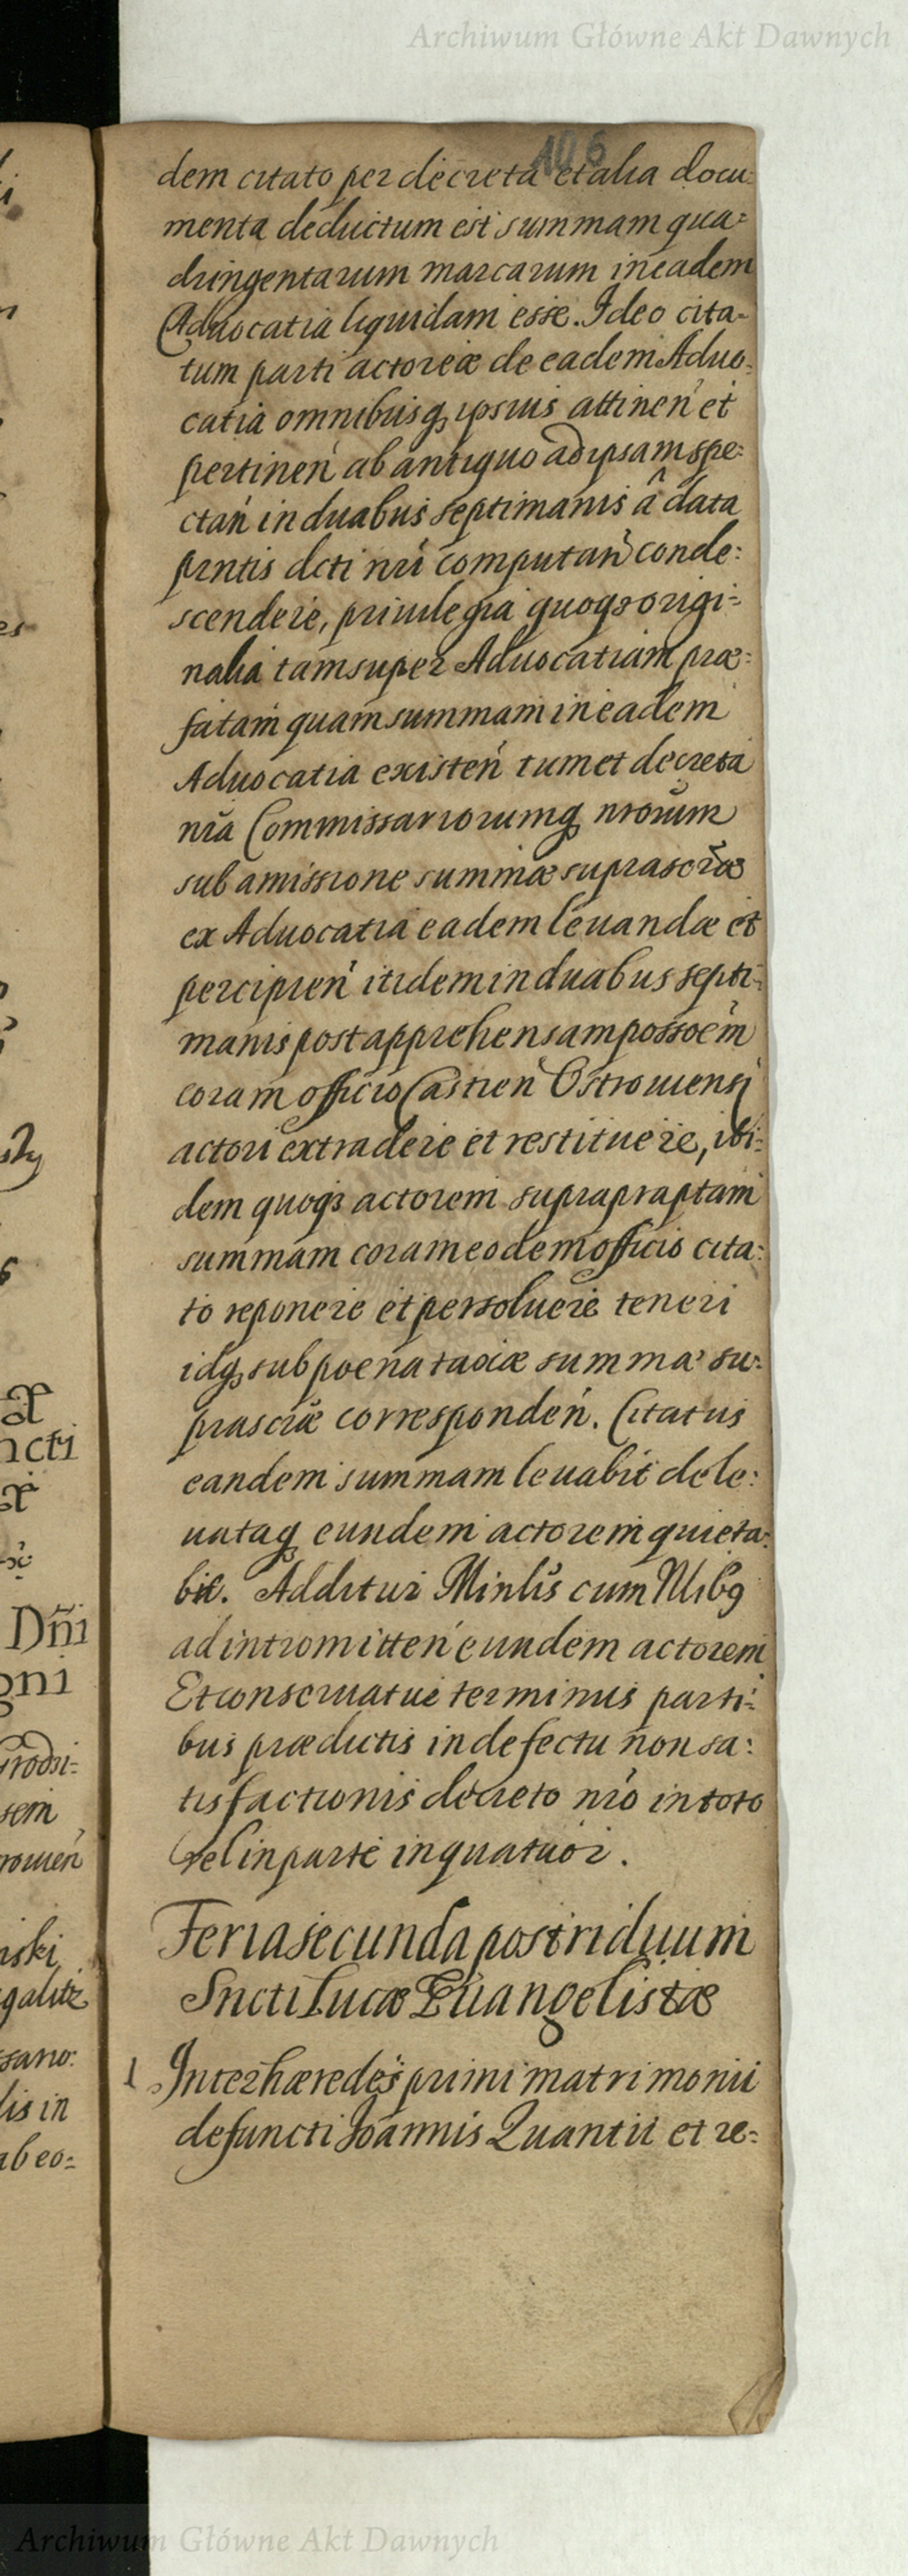 Archiwum Główne Akt Dawnych
106
dem citato per decreta et alia docu-
menta deductum est summam qua-
dringentarum marcarum in eadem
Aduocatia liquidam esse. Ideo cita-
tum parti actoreæ de eadem Aduo-
catia omnibusq ipsius attinen et
pertinen ab antiquo ad ipsam spe-
ctan in duabus septimanis â data
pntis dcti nri computan conde-
scendere, priuilegia quoqs origi-
nalia tam super Aduocatiam præ-
fatam quam summam in eadem
Aduocatia existen tum et decreta
nra Commissariorumq nrorum
sub amissione summæ suprascræ
ex Aduocatia eadem leuandæ et
percipien itidem in duabus septi-
manis post apprehensam possoem
coram officio Castren Ostrouiensj
actori extradere et restituere, ibi-
dem quoqs actorem suprapraptam
summam coram eodem officio cita-
to reponere et persoluere teneri
idq sub poena taoiæ summæ su-
prascræ corresponden. Citatus
eandem summam leuabit de le-
uataq eundem actorem quieta-
bit. Additur Minlis cum Nlibq
ad intromitten eundem actorem
Et conseruatur terminus parti-
bus prædictis in defectu non sa-
tisfactionis decreto nro in toto
vel in parte inquatuor.
Feria secunda postriduum
Sncti Lucæ Euangelistæ
1 Inter hæredes primi matrimonii
defuncti Joannis Quantii et re-
æ
ncti
æ
Dni
oni
sem
rouien
nski
galitz
ssano:
lis in
ab eo-
Archiwum Główne Akt Dawnych